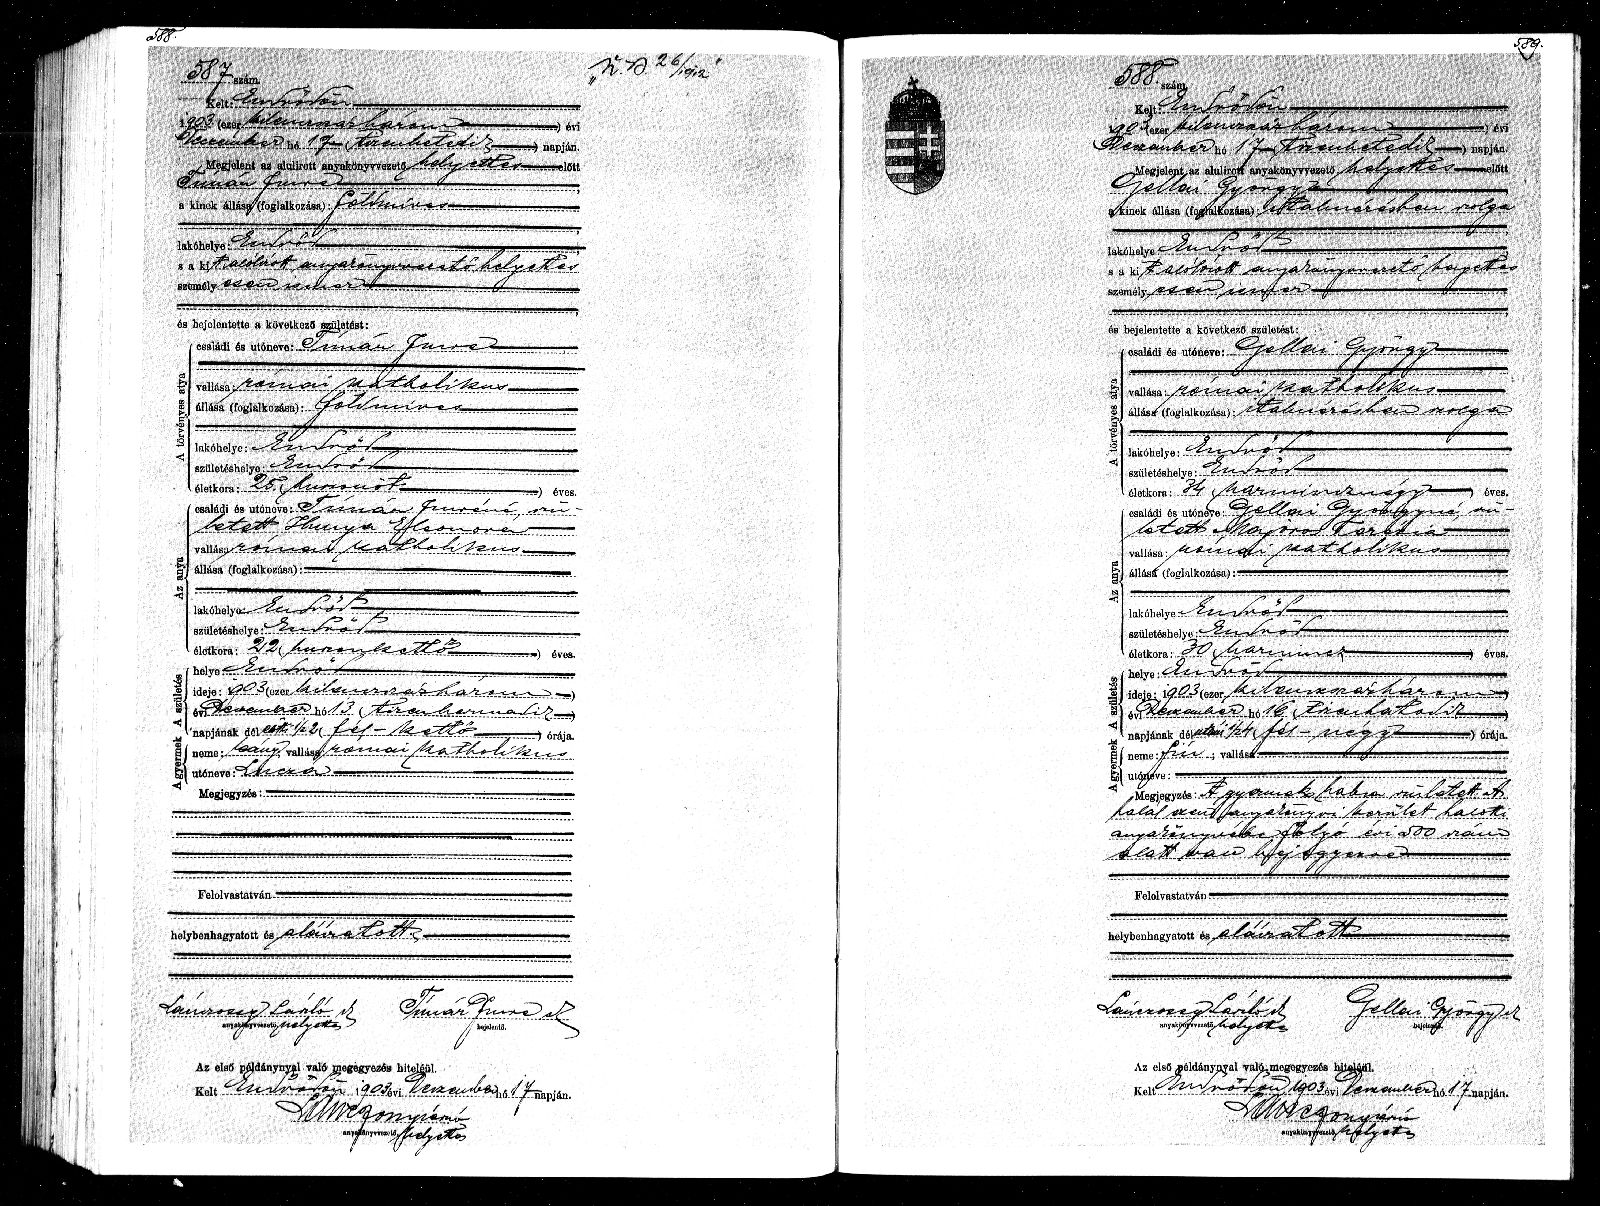 588.
587 szám.
Kelt: Endrődön
1903 (ezer kilenczszázhárom) évi
Deczember hó 17 (tizenhetedik) napján.
Megjelent az alulirott anyakönyvvezető helyettes előtt
Tímár Imre
a kinek állása (foglalkozása): földmíves
lakóhelye: Endrőd
s a kit alólírott anyakönyvvezető helyettes
személyesen ismer
és bejelentette a következő születést:
A törvényes atya
családi és utóneve: Tímár Imre
vallása: római katholikus
állása (foglalkozása): földmíves
lakóhelye: Endrőd
születéshelye: Endrőd
életkora: 25 (huszonöt) éves.
Az anya
családi és utóneve: Tímár Imréné, szü-
letett Hunya Eleonora
vallása: római katholikus
állása (foglalkozása):
lakóhelye: Endrőd
születéshelye: Endrőd
életkora: 22 (huszonkettő) éves.
A születés
helye: Endrőd
ideje: 1903 (ezer kilenczszázhárom)
évi Deczember hó 13. (tizenharmadik)
napjának dél előtti 1/2 (fél-kettő) órája.
A gyermek
neme: leány; vallása: római katholikus
utóneve: Lucza
Megjegyzés:
Felolvastatván
helybenhagyatott és aláíratott.
László
Tímár Imre
anyakönyvvezető helyettes
bejelentő.
Az első példánynyal való megegyezés hiteléül.
Kelt Endrődön 1903 évi Deczember hó 17 napján.
anyakönyvvezető helyettes
26/1912
589.
588 szám.
Kelt: Endrődön
1903 (ezer kilenczszázhárom) évi
Deczember hó 17 (tizenhetedik) napján.
Megjelent az alulirott anyakönyvvezető helyettes előtt
Gellai György
a kinek állása (foglalkozása): Malomásban szolga
lakóhelye: Endrőd
s a kit alólírott anyakönyvvezető helyettes
személyesen ismer
és bejelentette a következő születést:
A törvényes atya
családi és utóneve: Gellai György
vallása: római katholikus
állása (foglalkozása): szolga
lakóhelye: Endrőd
születéshelye: Endrőd
életkora: 34 (harmincznégy) éves.
Az anya
családi és utóneve: Gellai Györgyné, szü-
letett Majoros Terézia
vallása: római katholikus
állása (foglalkozása):
lakóhelye: Endrőd
születéshelye: Endrőd
életkora: 30 (harmincz) éves.
A születés
helye: Endrőd
ideje: 1903 (ezer kilenczszázhárom)
évi Deczember hó 16 (tizenhatodik)
napjának dél utáni 1/2 4 (fél-négy) órája.
A gyermek
neme: fiú; vallása
utóneve:
Megjegyzés: A gyermek halva született. A
halál ezen anyakönyvi kerület halotti
anyakönyvébe folyó évi 500 szám
alatt van bejegyezve
Felolvastatván
helybenhagyatott és aláíratott
László
Gellai György
anyakönyvvezető helyettes
bejelentő.
Az első példánynyal való megegyezés hiteléül.
Kelt Endrődön 1903 évi Deczember hó 17 napján.
anyakönyvvezető helyettes